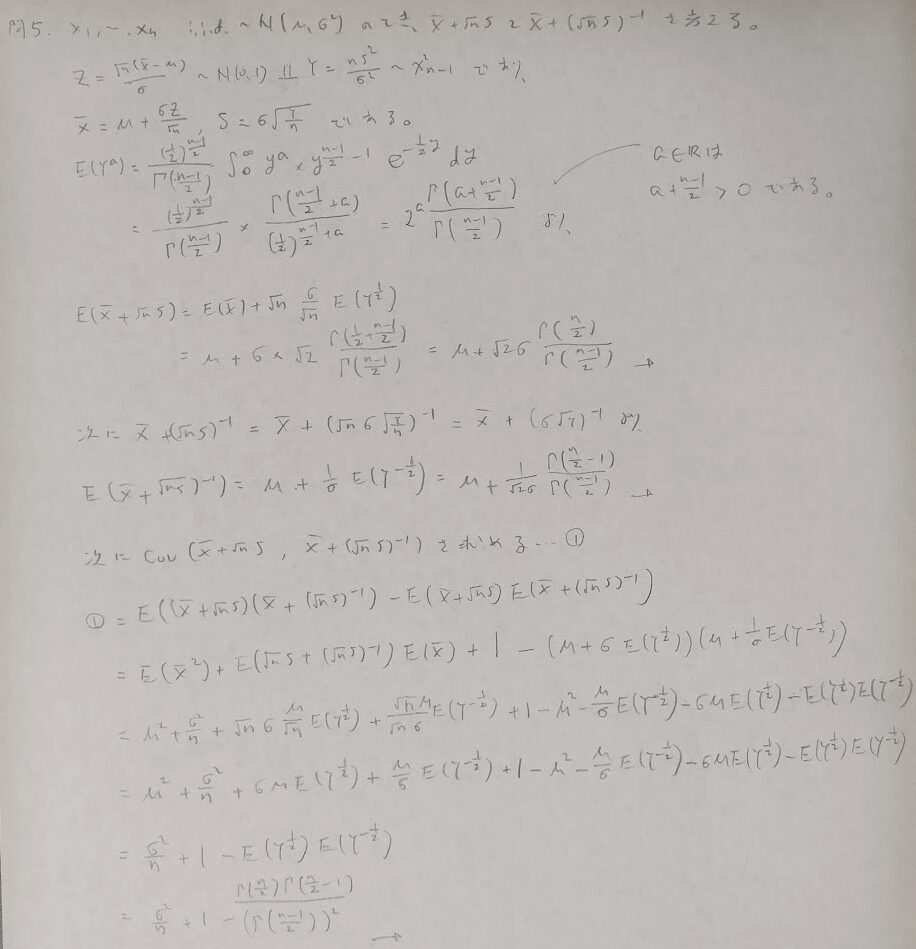 問5. x₁, ~, xₙ i.i.d. ~ N(μ, σ²) のとき、x̄ + √n S と x̄ + (√n S)⁻¹ を考える。
Z = √n(x̄ - μ)/σ ~ N(0,1) ⫫ Y = nS²/σ² ~ χ²ₙ₋₁ であり、
x̄ = μ + σZ/√n, S = σ√(Y/n) である。
E(Yᵃ) = (1/2)^((n-1)/2) / Γ((n-1)/2) ∫₀^∞ yᵃ × y^((n-1)/2 - 1) e^(-(1/2)y) dy
a∈ℝは
a + (n-1)/2 > 0 である。
= (1/2)^((n-1)/2) / Γ((n-1)/2) × Γ((n-1)/2 + a) / (1/2)^((n-1)/2 + a) = 2ᵃ Γ(a + (n-1)/2) / Γ((n-1)/2) より、
E(x̄ + √n S) = E(x̄) + √n σ/√n E(Y^(1/2))
= μ + σ × √2 Γ(1/2 + (n-1)/2) / Γ((n-1)/2) = μ + √2σ Γ(n/2) / Γ((n-1)/2) →
次に x̄ + (√n S)⁻¹ = x̄ + (√n σ√(Y/n))⁻¹ = x̄ + (σ√Y)⁻¹ より、
E(x̄ + √nS)⁻¹) = μ + 1/σ E(Y^(-1/2)) = μ + 1/(√2σ) Γ(n/2 - 1) / Γ((n-1)/2) →
次に Cov(x̄ + √n S, x̄ + (√n S)⁻¹) を求める … ①
① = E((x̄ + √n S)(x̄ + (√n S)⁻¹) - E(x̄ + √n S) E(x̄ + (√n S)⁻¹)
= E(x̄²) + E(√n S + (√n S)⁻¹) E(x̄) + 1 - (μ + σ E(Y^(1/2)))(μ + 1/σ E(Y^(-1/2)))
= μ² + σ²/n + √n σ μ/√n E(Y^(1/2)) + √n μ/(√n σ) E(Y^(-1/2)) + 1 - μ² - μ/σ E(Y^(-1/2)) - σμE(Y^(1/2)) - E(Y^(1/2))E(Y^(-1/2))
= μ² + σ²/n + σμE(Y^(1/2)) + μ/σ E(Y^(-1/2)) + 1 - μ² - μ/σ E(Y^(-1/2)) - σμE(Y^(1/2)) - E(Y^(1/2))E(Y^(-1/2))
= σ²/n + 1 - E(Y^(1/2)) E(Y^(-1/2))
= σ²/n + 1 - Γ(n/2)Γ(n/2 - 1) / (Γ((n-1)/2))² →